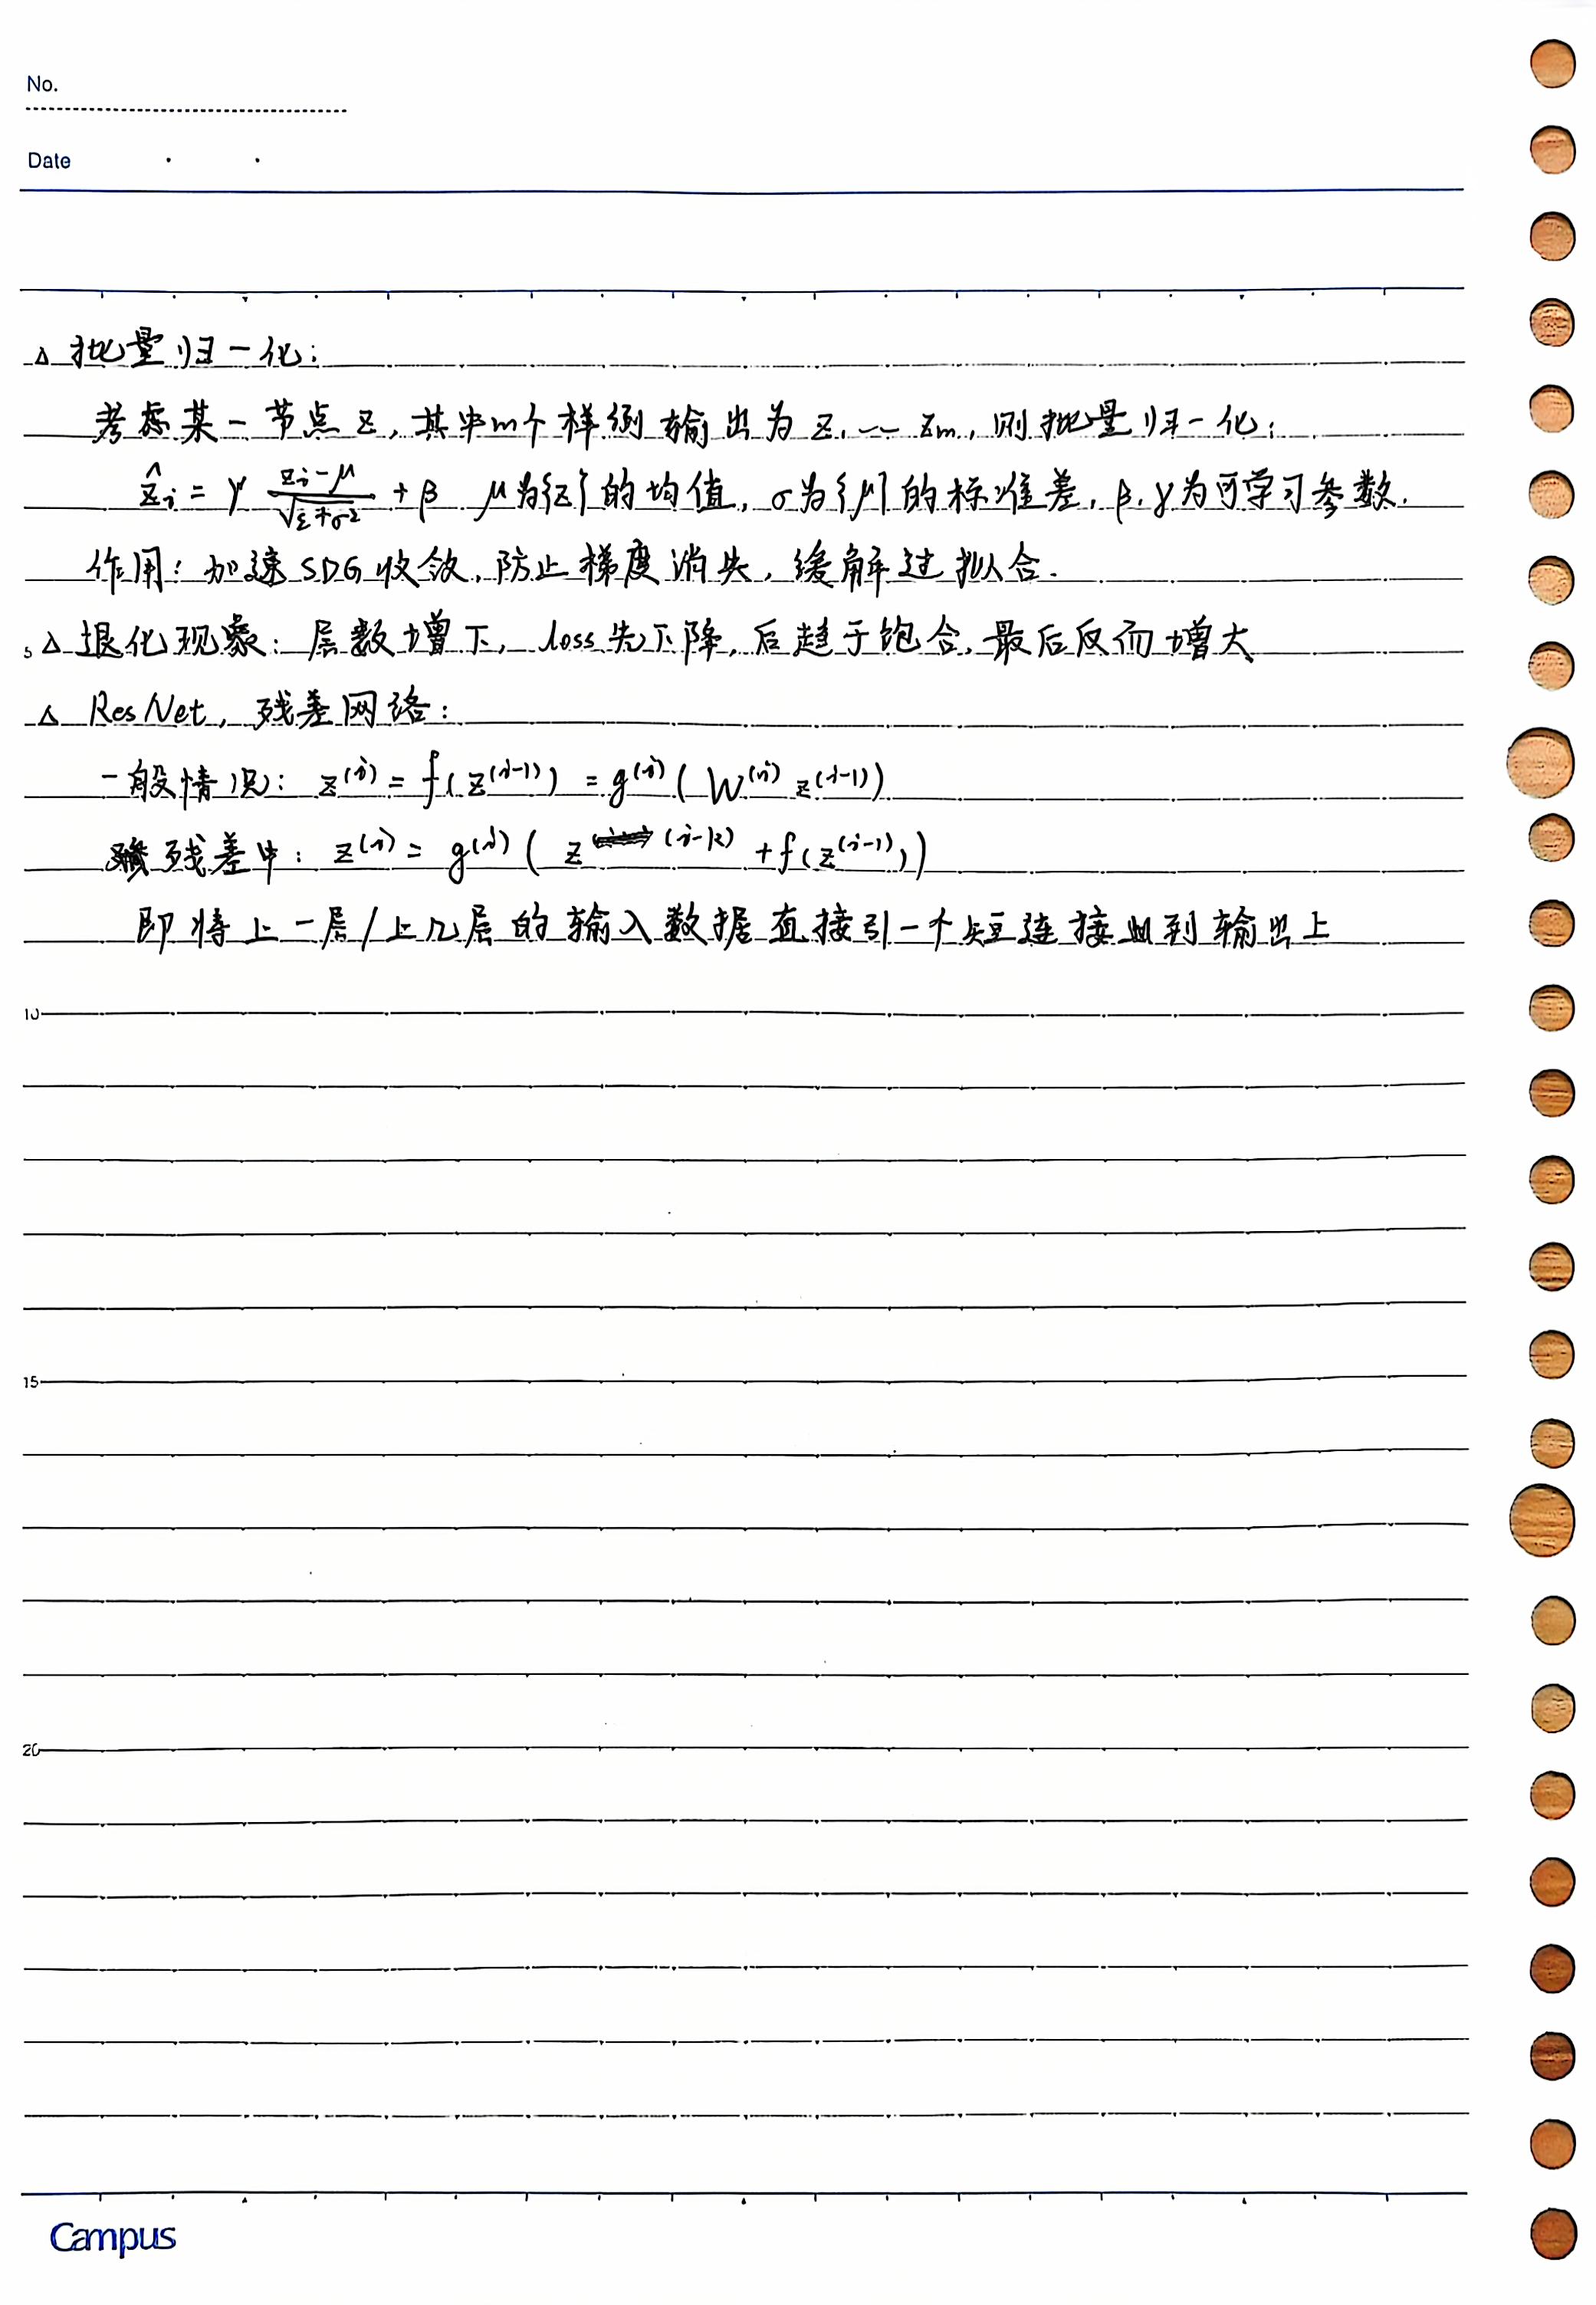 No.
Date
△ 批量归一化：
考虑某一节点 z, 其中m个样例输出为 z₁ … zₘ, 则批量归一化：
ẑᵢ = γ (zᵢ-μ)/√(ε+σ²) + β μ为{z}的均值, σ为{μ}的标准差, β, γ为可学习参数.
作用：加速SDG收敛, 防止梯度消失, 缓解过拟合.
5 △ 退化现象：层数增下, loss先下降, 后趋于饱合, 最后反而增大
△ ResNet, 残差网络：
一般情况：z⁽ⁱ⁾ = f(z⁽ⁱ⁻¹⁾) = g⁽ⁱ⁾(W⁽ⁱ⁾ z⁽ⁱ⁻¹⁾)
残差中：z⁽ⁱ⁾ = g⁽ⁱ⁾(z⁽ⁱ⁻ᵏ⁾ + f(z⁽ⁱ⁻¹⁾))
即将上一层/上几层的输入数据直接引一个短连接到输出上
10
15
20
Campus